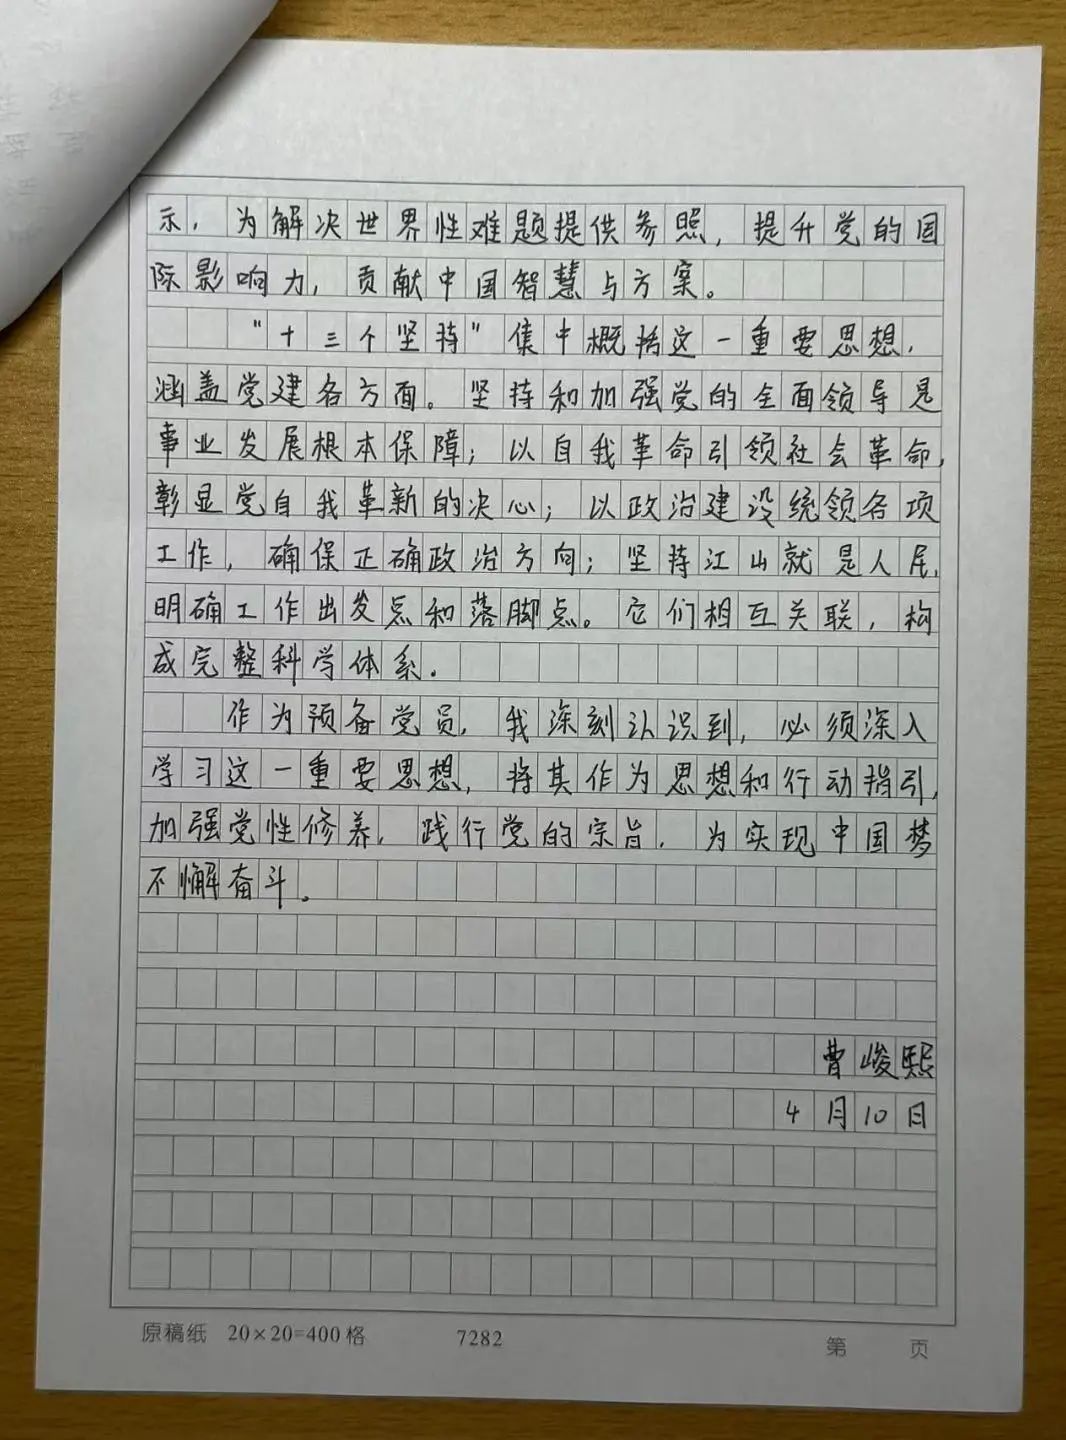 示，为解决世界性难题提供参照，提升党的国
际影响力，贡献中国智慧与方案。
“十三个坚持”集中概括这一重要思想，
涵盖党建各方面。坚持和加强党的全面领导是
事业发展根本保障；以自我革命引领社会革命，
彰显党自我革新的决心；以政治建设统领各项
工作，确保正确政治方向；坚持江山就是人民，
明确工作出发点和落脚点。它们相互关联，构
成完整科学体系。
作为预备党员，我深刻认识到，必须深入
学习这一重要思想，将其作为思想和行动指引，
加强党性修养，践行党的宗旨，为实现中国梦
不懈奋斗。
曹峻熙
4月10日
原稿纸 20×20=400格 7282 第 页